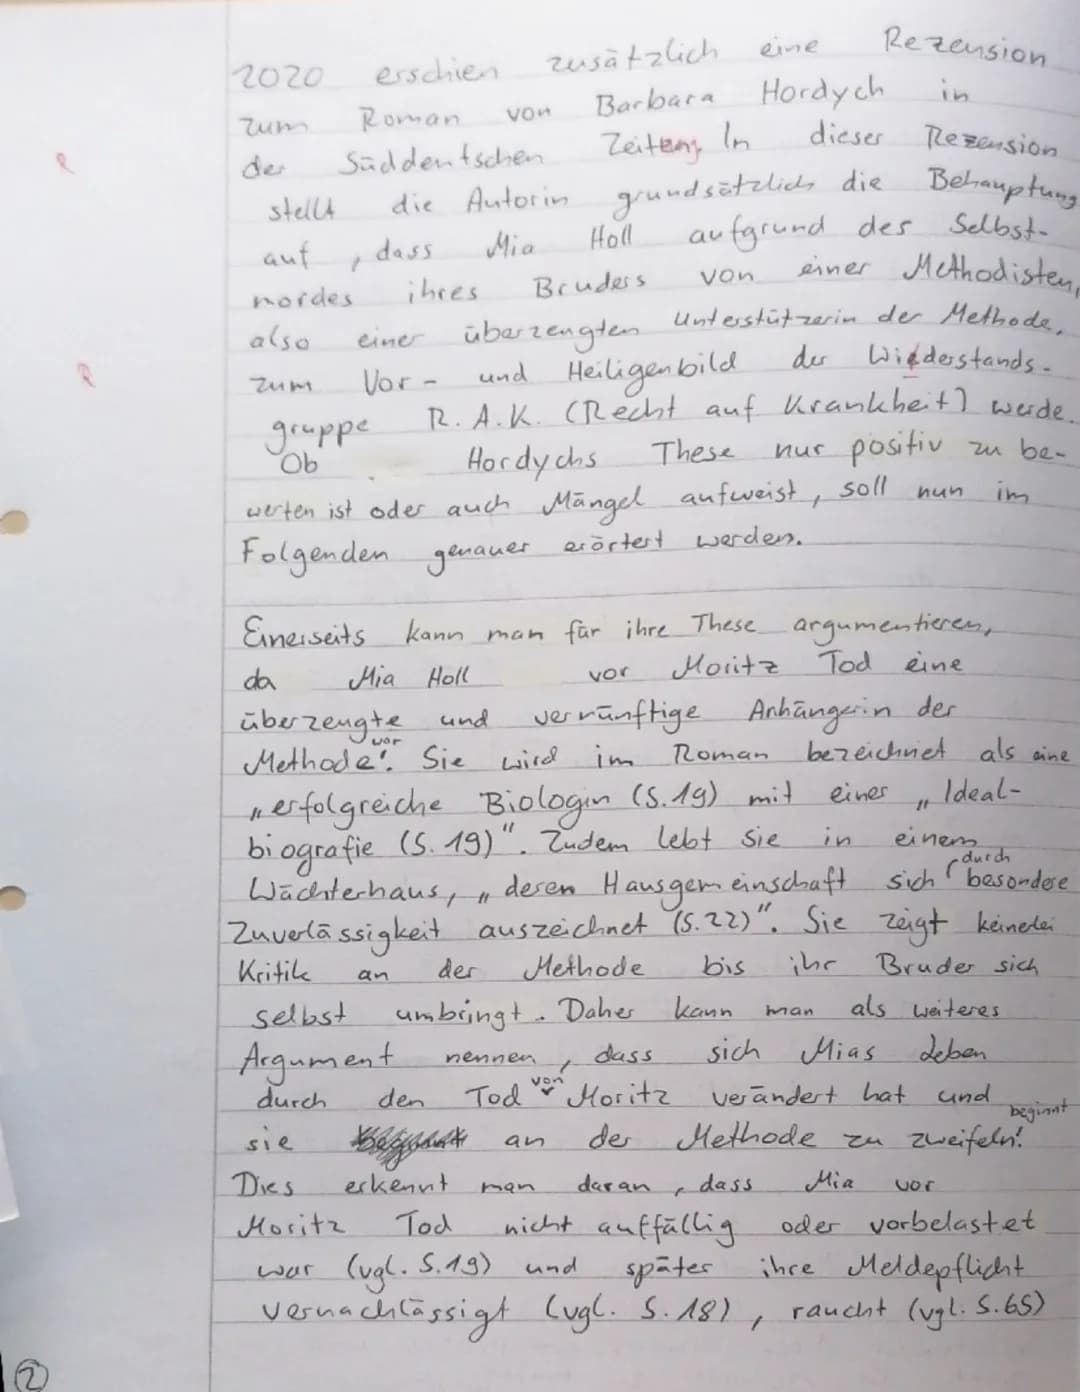 2020 erschien zusätzlich eine Rezension
zum Roman von Barbara Hordych in
R der Süddeutschen Zeitung. In dieser Rezension
stellt die Autorin grundsätzlich die Behauptung
auf, dass Mia Holl aufgrund des Selbst-
mordes ihres Bruders von einer Methodisten,
also einer überzeugten Unterstützerin der Methode,
R zum Vor- und Heiligenbild der Wiederstands-
gruppe R.A.K. (Recht auf Krankheit) werde.
Ob Hordychs These nur positiv zu be-
werten ist oder auch Mängel aufweist, soll nun im
Folgenden genauer erörtert werden.
Einerseits kann man für ihre These argumentieren,
da Mia Holl vor Moritz Tod eine
überzeugte und vernünftige Anhängerin der
Methode war. Sie wird im Roman bezeichnet als eine
„erfolgreiche Biologin (S.19) mit einer „Ideal-
biografie (S.19)". Zudem lebt sie in einem
Wächterhaus, „deren Hausgemeinschaft sich durch besondere
Zuverlässigkeit auszeichnet (S.22)". Sie zeigt keinerlei
Kritik an der Methode bis ihr Bruder sich
selbst umbringt. Daher kann man als weiteres
Argument nennen, dass sich Mias Leben
durch den Tod von Moritz verändert hat und
sie an der Methode zu zweifeln beginnt.
Dies erkennt man daran, dass Mia vor
Moritz Tod nicht auffällig oder vorbelastet
war (vgl. S.19) und später ihre Meldepflicht
vernachlässigt (vgl. S.18), raucht (vgl. S.65)
2